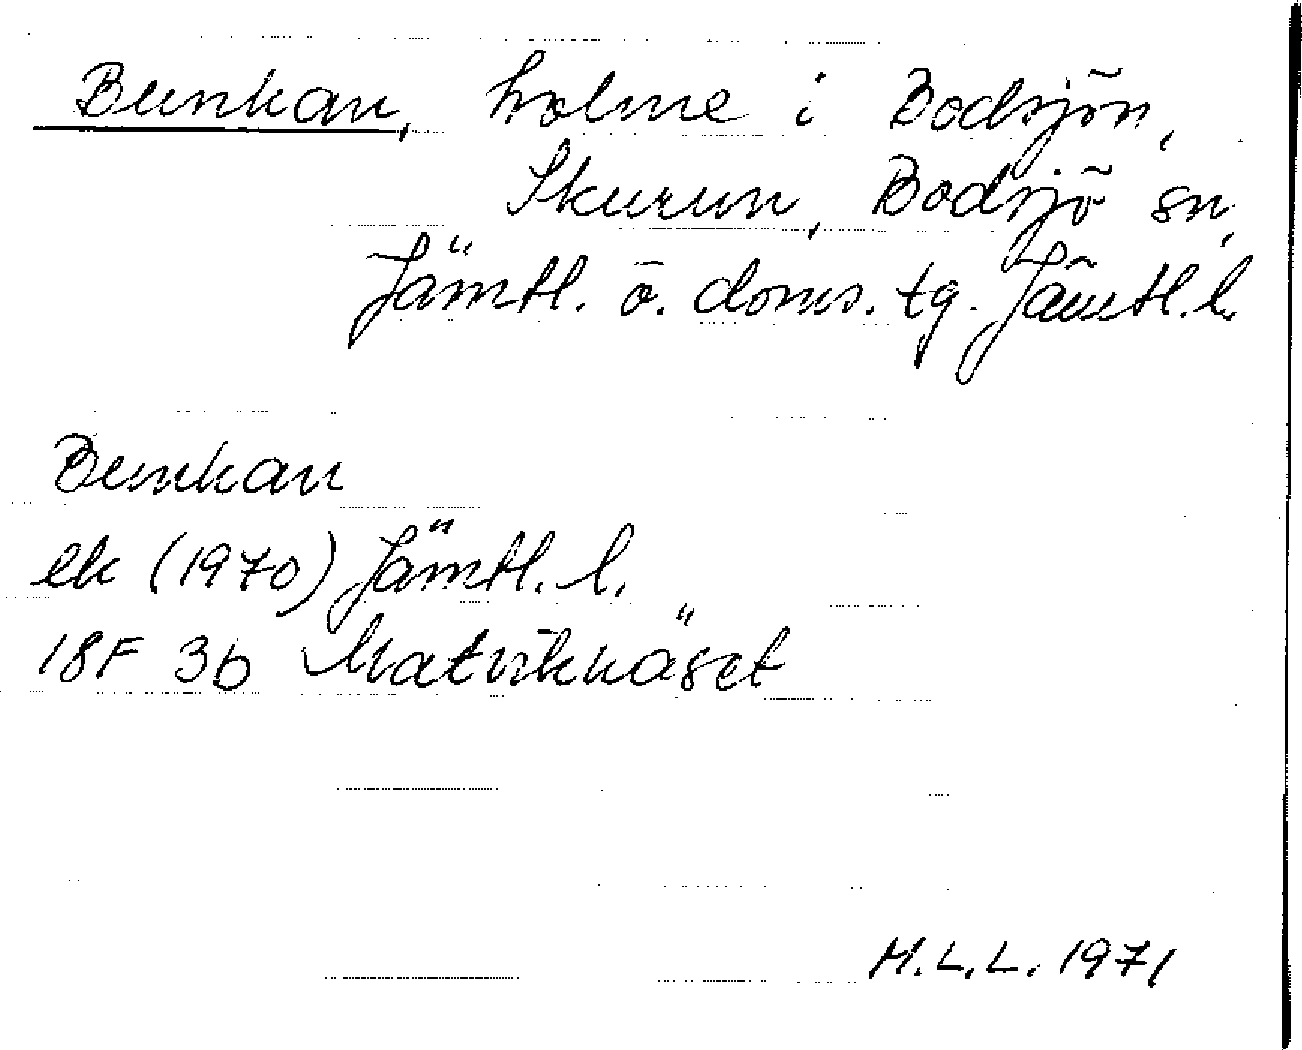 Bunkan, holme i Bodsjön,
Skurun, Bodsjö sn,
Jämtl. ö. doms. tg. Jämtl. l.
Bunkan
ek (1970) Jämtl. l.
18F 3b Matviknäset
H.L.L. 1971